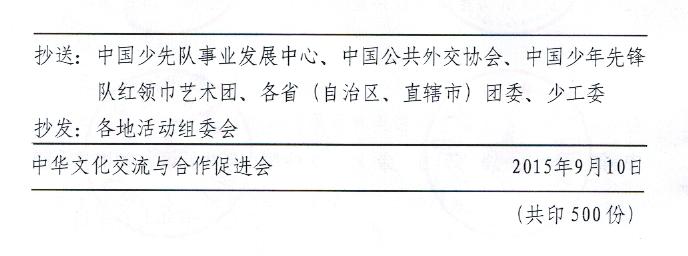 抄送：中国少先队事业发展中心、中国公共外交协会、中国少年先锋
队红领巾艺术团、各省（自治区、直辖市）团委、少工委
抄发：各地活动组委会
中华文化交流与合作促进会 2015年9月10日
（共印500份）